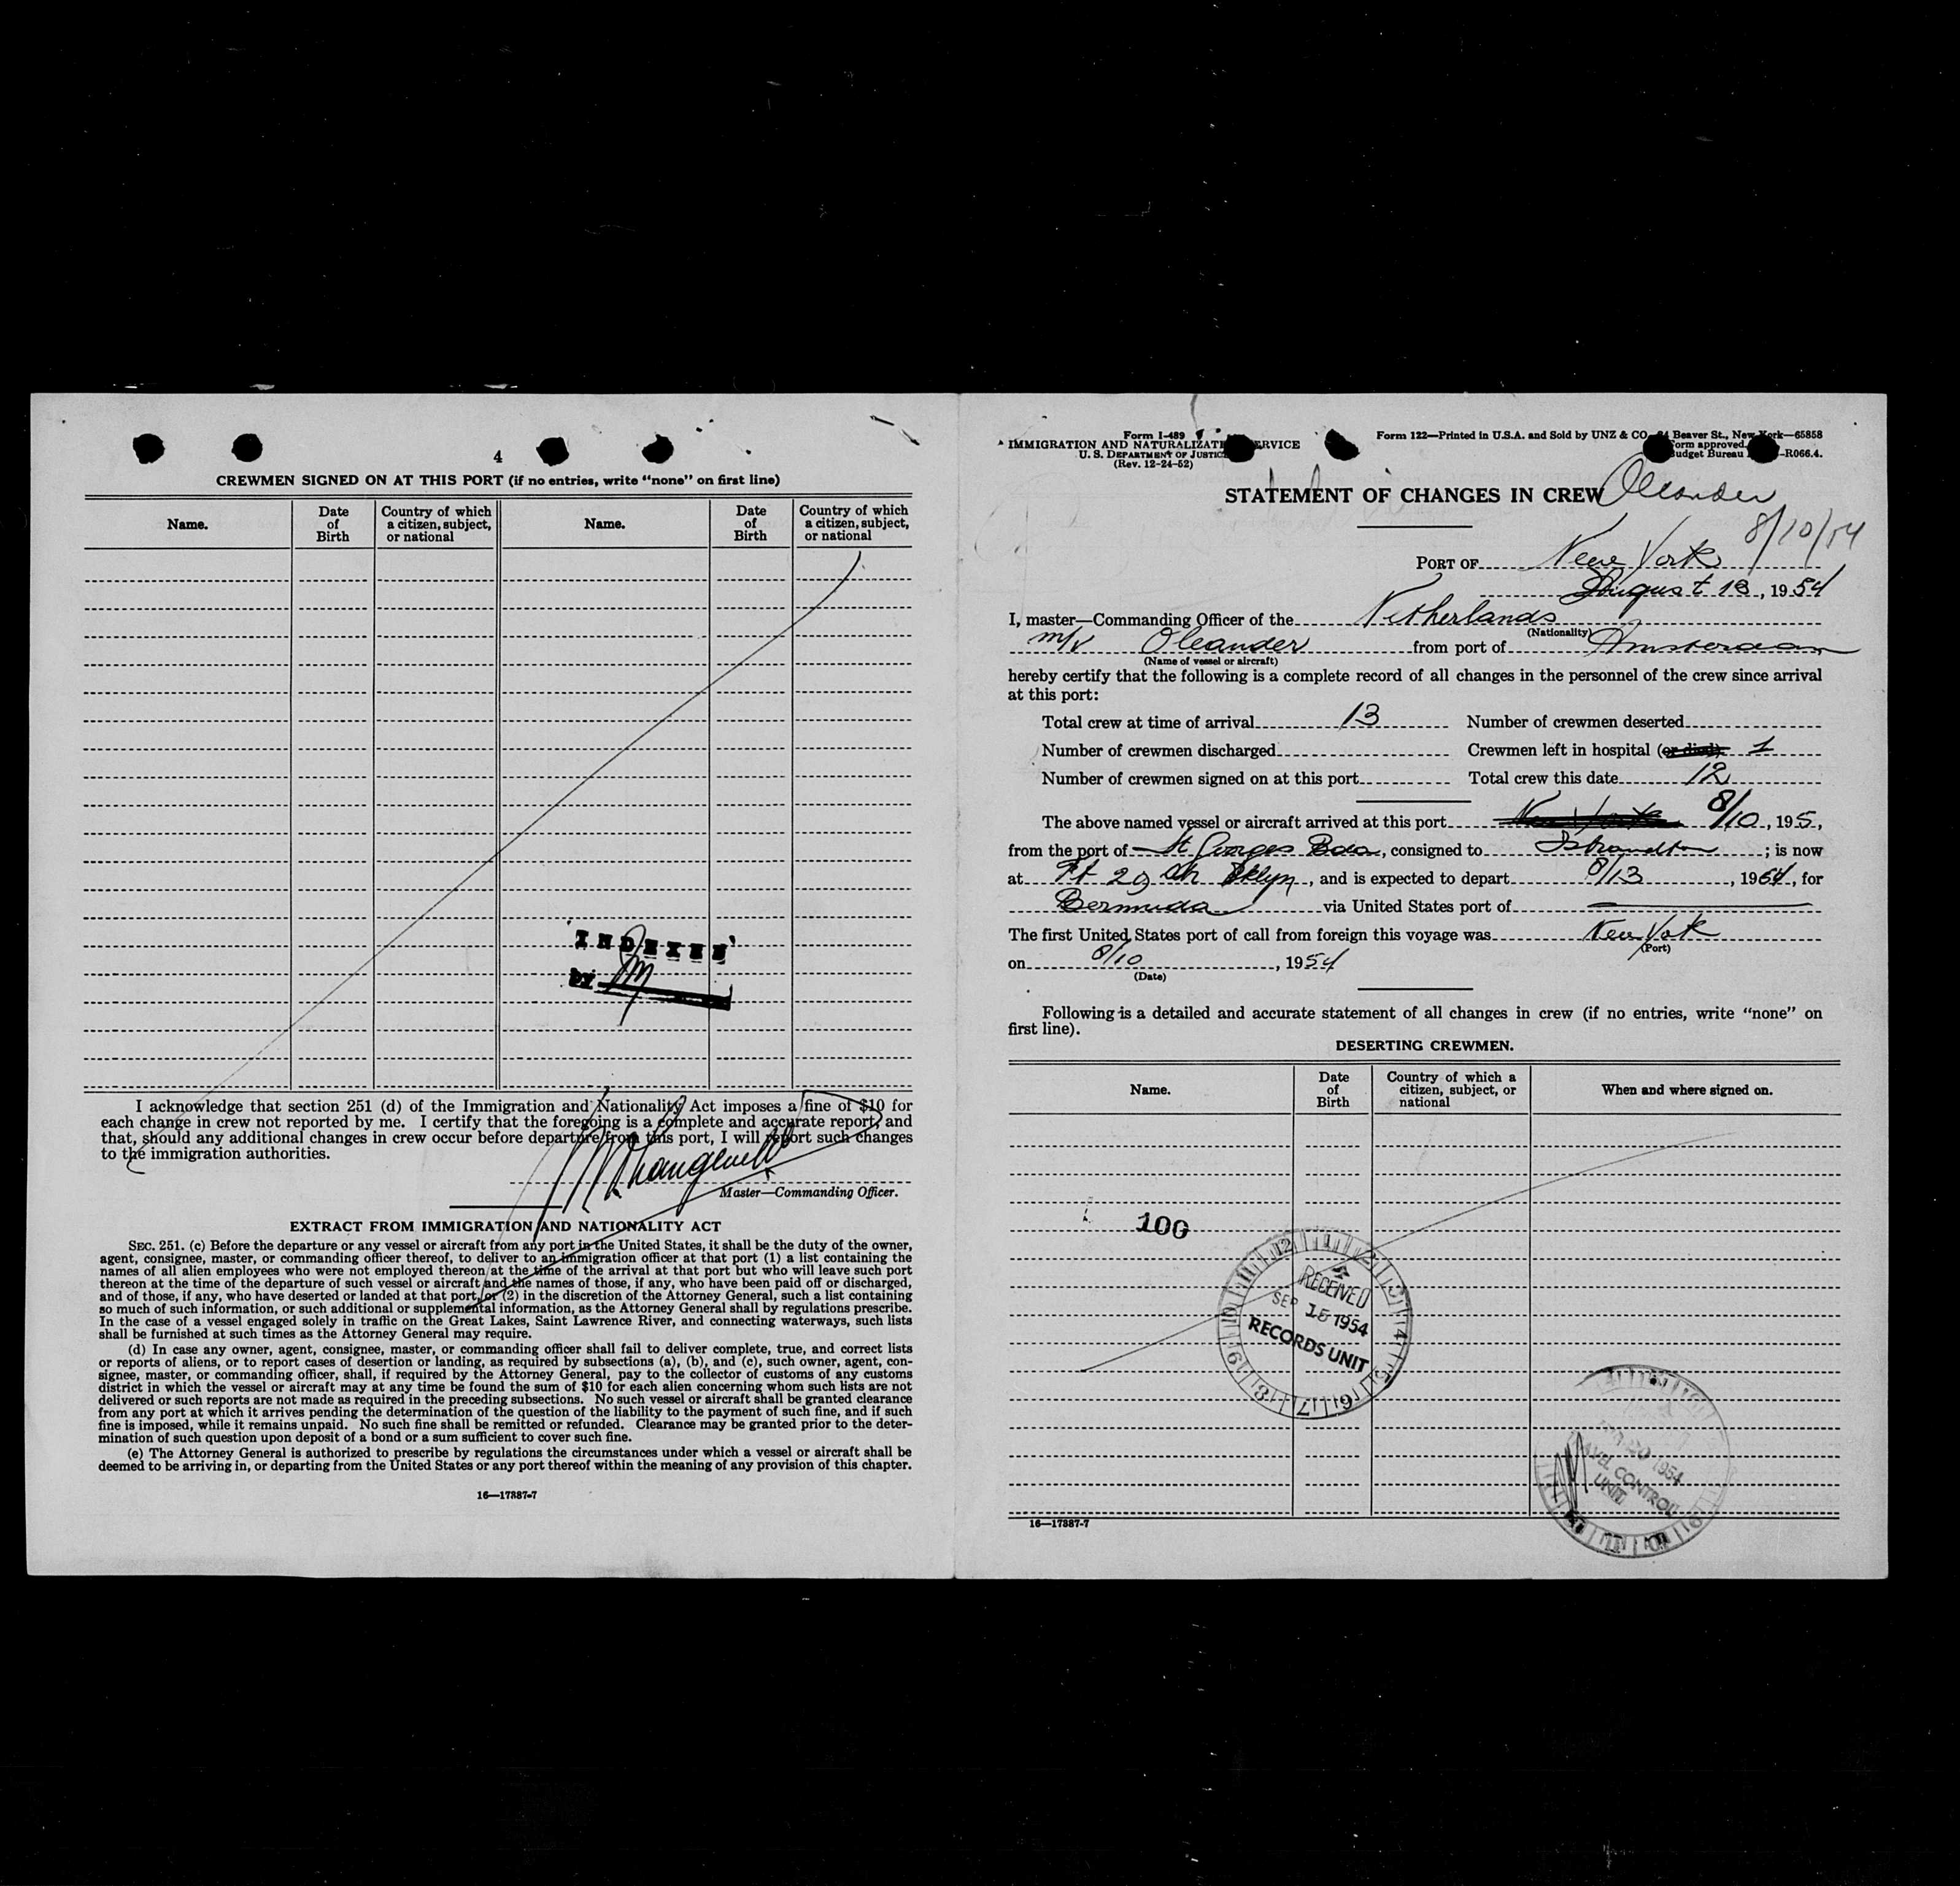 4
CREWMEN SIGNED ON AT THIS PORT (if no entries, write “none” on first line)
Name. Date of Birth Country of which a citizen, subject, or national Name. Date of Birth Country of which a citizen, subject, or national
INDEXED
by
I acknowledge that section 251 (d) of the Immigration and Nationality Act imposes a fine of $10 for
each change in crew not reported by me. I certify that the foregoing is a complete and accurate report, and
that, should any additional changes in crew occur before departure from this port, I will report such changes
to the immigration authorities.
Master—Commanding Officer.
EXTRACT FROM IMMIGRATION AND NATIONALITY ACT
SEC. 251. (c) Before the departure or any vessel or aircraft from any port in the United States, it shall be the duty of the owner,
agent, consignee, master, or commanding officer thereof, to deliver to an immigration officer at that port (1) a list containing the
names of all alien employees who were not employed thereon at the time of the arrival at that port but who will leave such port
thereon at the time of the departure of such vessel or aircraft and the names of those, if any, who have been paid off or discharged,
and of those, if any, who have deserted or landed at that port, or (2) in the discretion of the Attorney General, such a list containing
so much of such information, or such additional or supplemental information, as the Attorney General shall by regulations prescribe.
In the case of a vessel engaged solely in traffic on the Great Lakes, Saint Lawrence River, and connecting waterways, such lists
shall be furnished at such times as the Attorney General may require.
(d) In case any owner, agent, consignee, master, or commanding officer shall fail to deliver complete, true, and correct lists
or reports of aliens, or to report cases of desertion or landing, as required by subsections (a), (b), and (c), such owner, agent, con-
signee, master, or commanding officer, shall, if required by the Attorney General, pay to the collector of customs of any customs
district in which the vessel or aircraft may at any time be found the sum of $10 for each alien concerning whom such lists are not
delivered or such reports are not made as required in the preceding subsections. No such vessel or aircraft shall be granted clearance
from any port at which it arrives pending the determination of the question of the liability to the payment of such fine, and if such
fine is imposed, while it remains unpaid. No such fine shall be remitted or refunded. Clearance may be granted prior to the deter-
mination of such question upon deposit of a bond or a sum sufficient to cover such fine.
(e) The Attorney General is authorized to prescribe by regulations the circumstances under which a vessel or aircraft shall be
deemed to be arriving in, or departing from the United States or any port thereof within the meaning of any provision of this chapter.
16—17887-7
Form I-489
IMMIGRATION AND NATURALIZATI ERVICE
U. S. DEPARTMENT OF JUSTIC
(Rev. 12-24-52)
Form 122—Printed in U.S.A. and Sold by UNZ & CO Beaver St., New York—65858
orm approved.
udget Bureau -R066.4.
STATEMENT OF CHANGES IN CREW Oleander
8/10/54
PORT OF New York
August 13, 1954
I, master—Commanding Officer of the Netherlands
(Nationality)
m/v Oleander from port of Amsterdam
(Name of vessel or aircraft)
hereby certify that the following is a complete record of all changes in the personnel of the crew since arrival
at this port:
Total crew at time of arrival 13 Number of crewmen deserted
Number of crewmen discharged Crewmen left in hospital (or died) 1
Number of crewmen signed on at this port Total crew this date 12
The above named vessel or aircraft arrived at this port New York 8/10, 195,
from the port of St Georges Bda, consigned to Isbrandtsen; is now
at Ft 29 Bklyn, and is expected to depart 8/13, 1954, for
Bermuda via United States port of
The first United States port of call from foreign this voyage was New York
(Port)
on 8/10, 1954
(Date)
Following is a detailed and accurate statement of all changes in crew (if no entries, write “none” on
first line).
DESERTING CREWMEN.
Name. Date of Birth Country of which a citizen, subject, or national When and where signed on.
100
RECEIVED
SEP 15 1954
RECORDS UNIT
20 1954
CONTROL
UNIT
16—17887-7